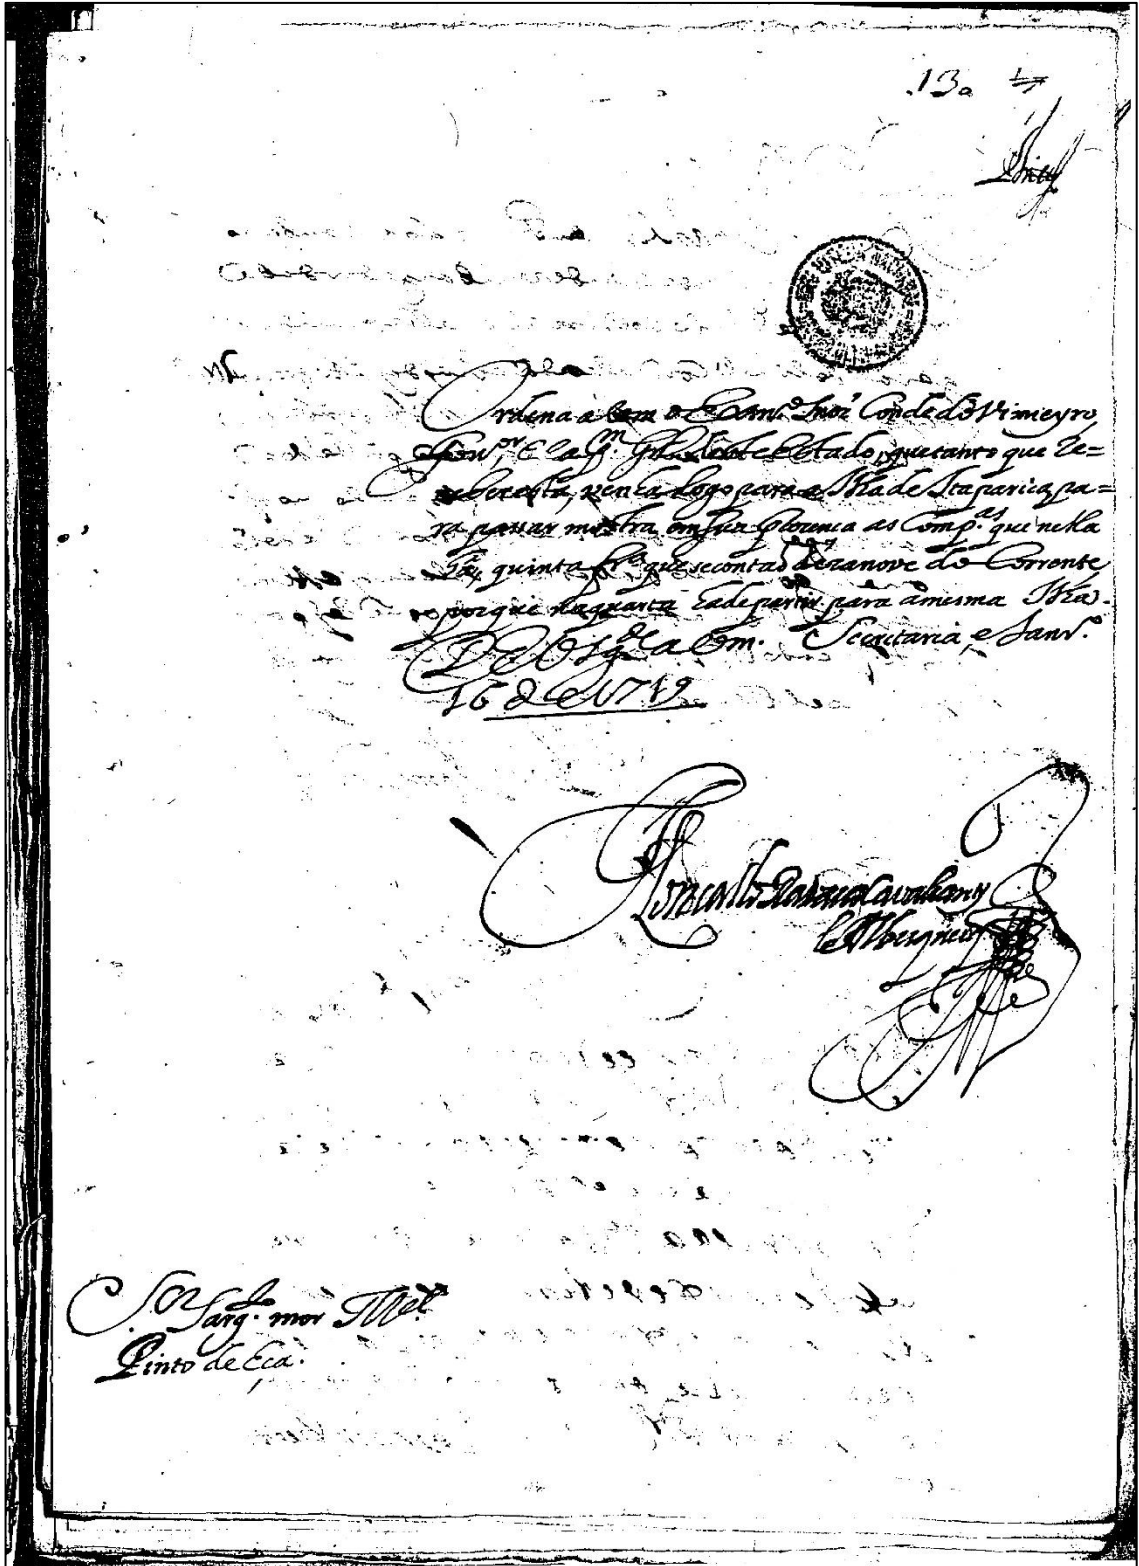 13a
Ordena a Vm. o Ex.mo Snor' Conde do Vimeyro,
Gov.or e Cap.m G.al deste Estado, que tanto que re=
ceber esta, venha logo para a Ilha de Itaparica, pa=
ra passar mostra em sua prezença as Comp.as que nella
há, quinta fr.ª que se contaõ dezanove do Corrente,
porque na quarta ha de partir para a mesma Ilha.
D.s g.de a Vm. Secretaria, e Janr.º
16 de 1719
Goncallo Ravasco Cavalcanty
e Albuqueq
S.or Sarg.to mor M.el
Pinto de Eca.